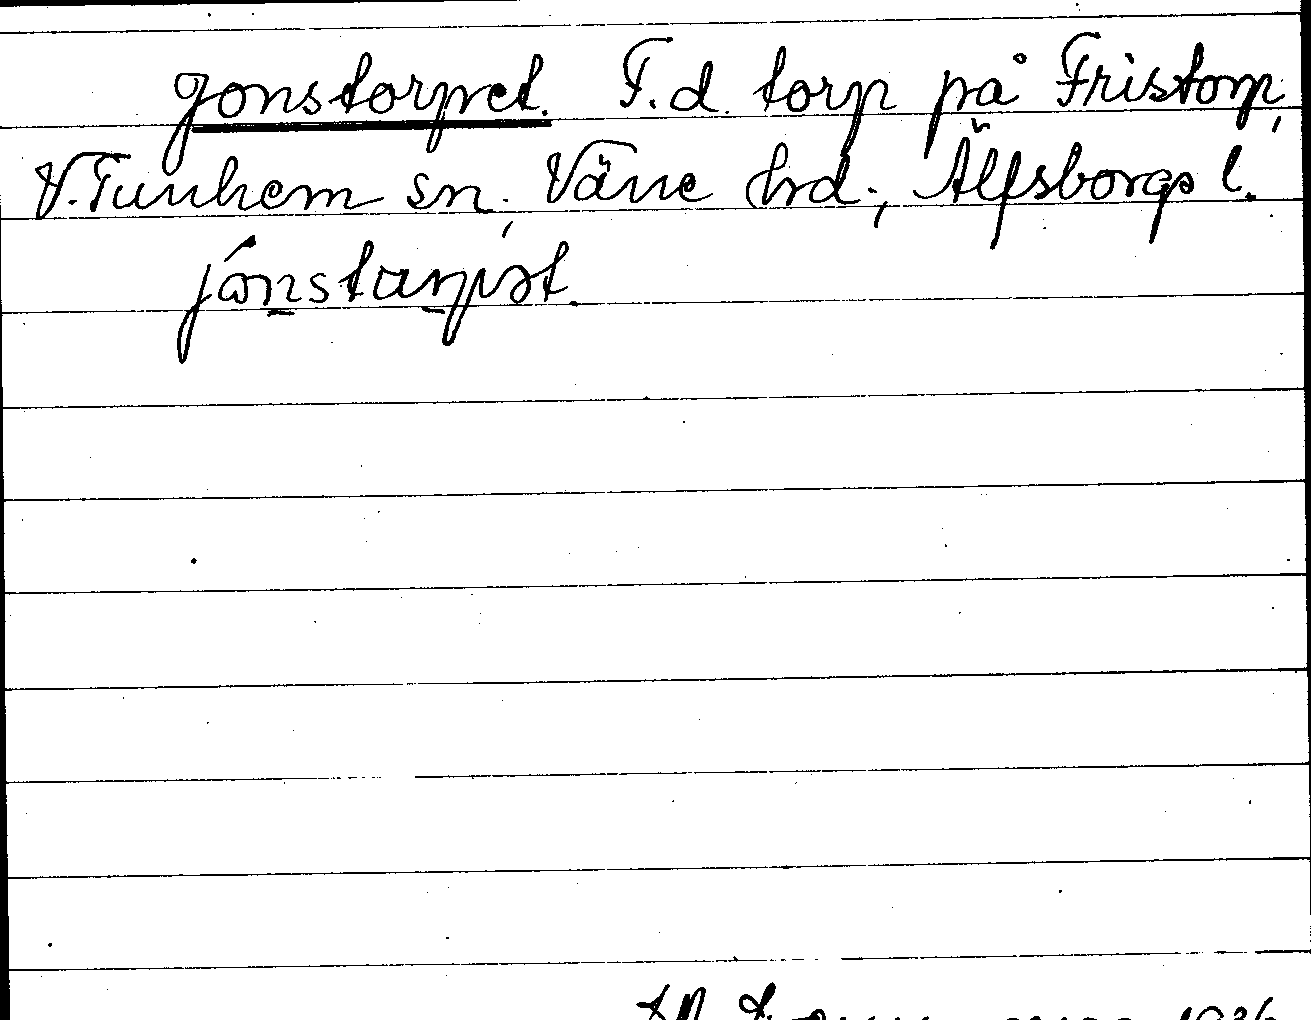 Jonstorpet. F.d. torp på Fristorp,
V. Tunhem sn, Väne hrd., Älfsborgs l.
jonstarpət.
1936